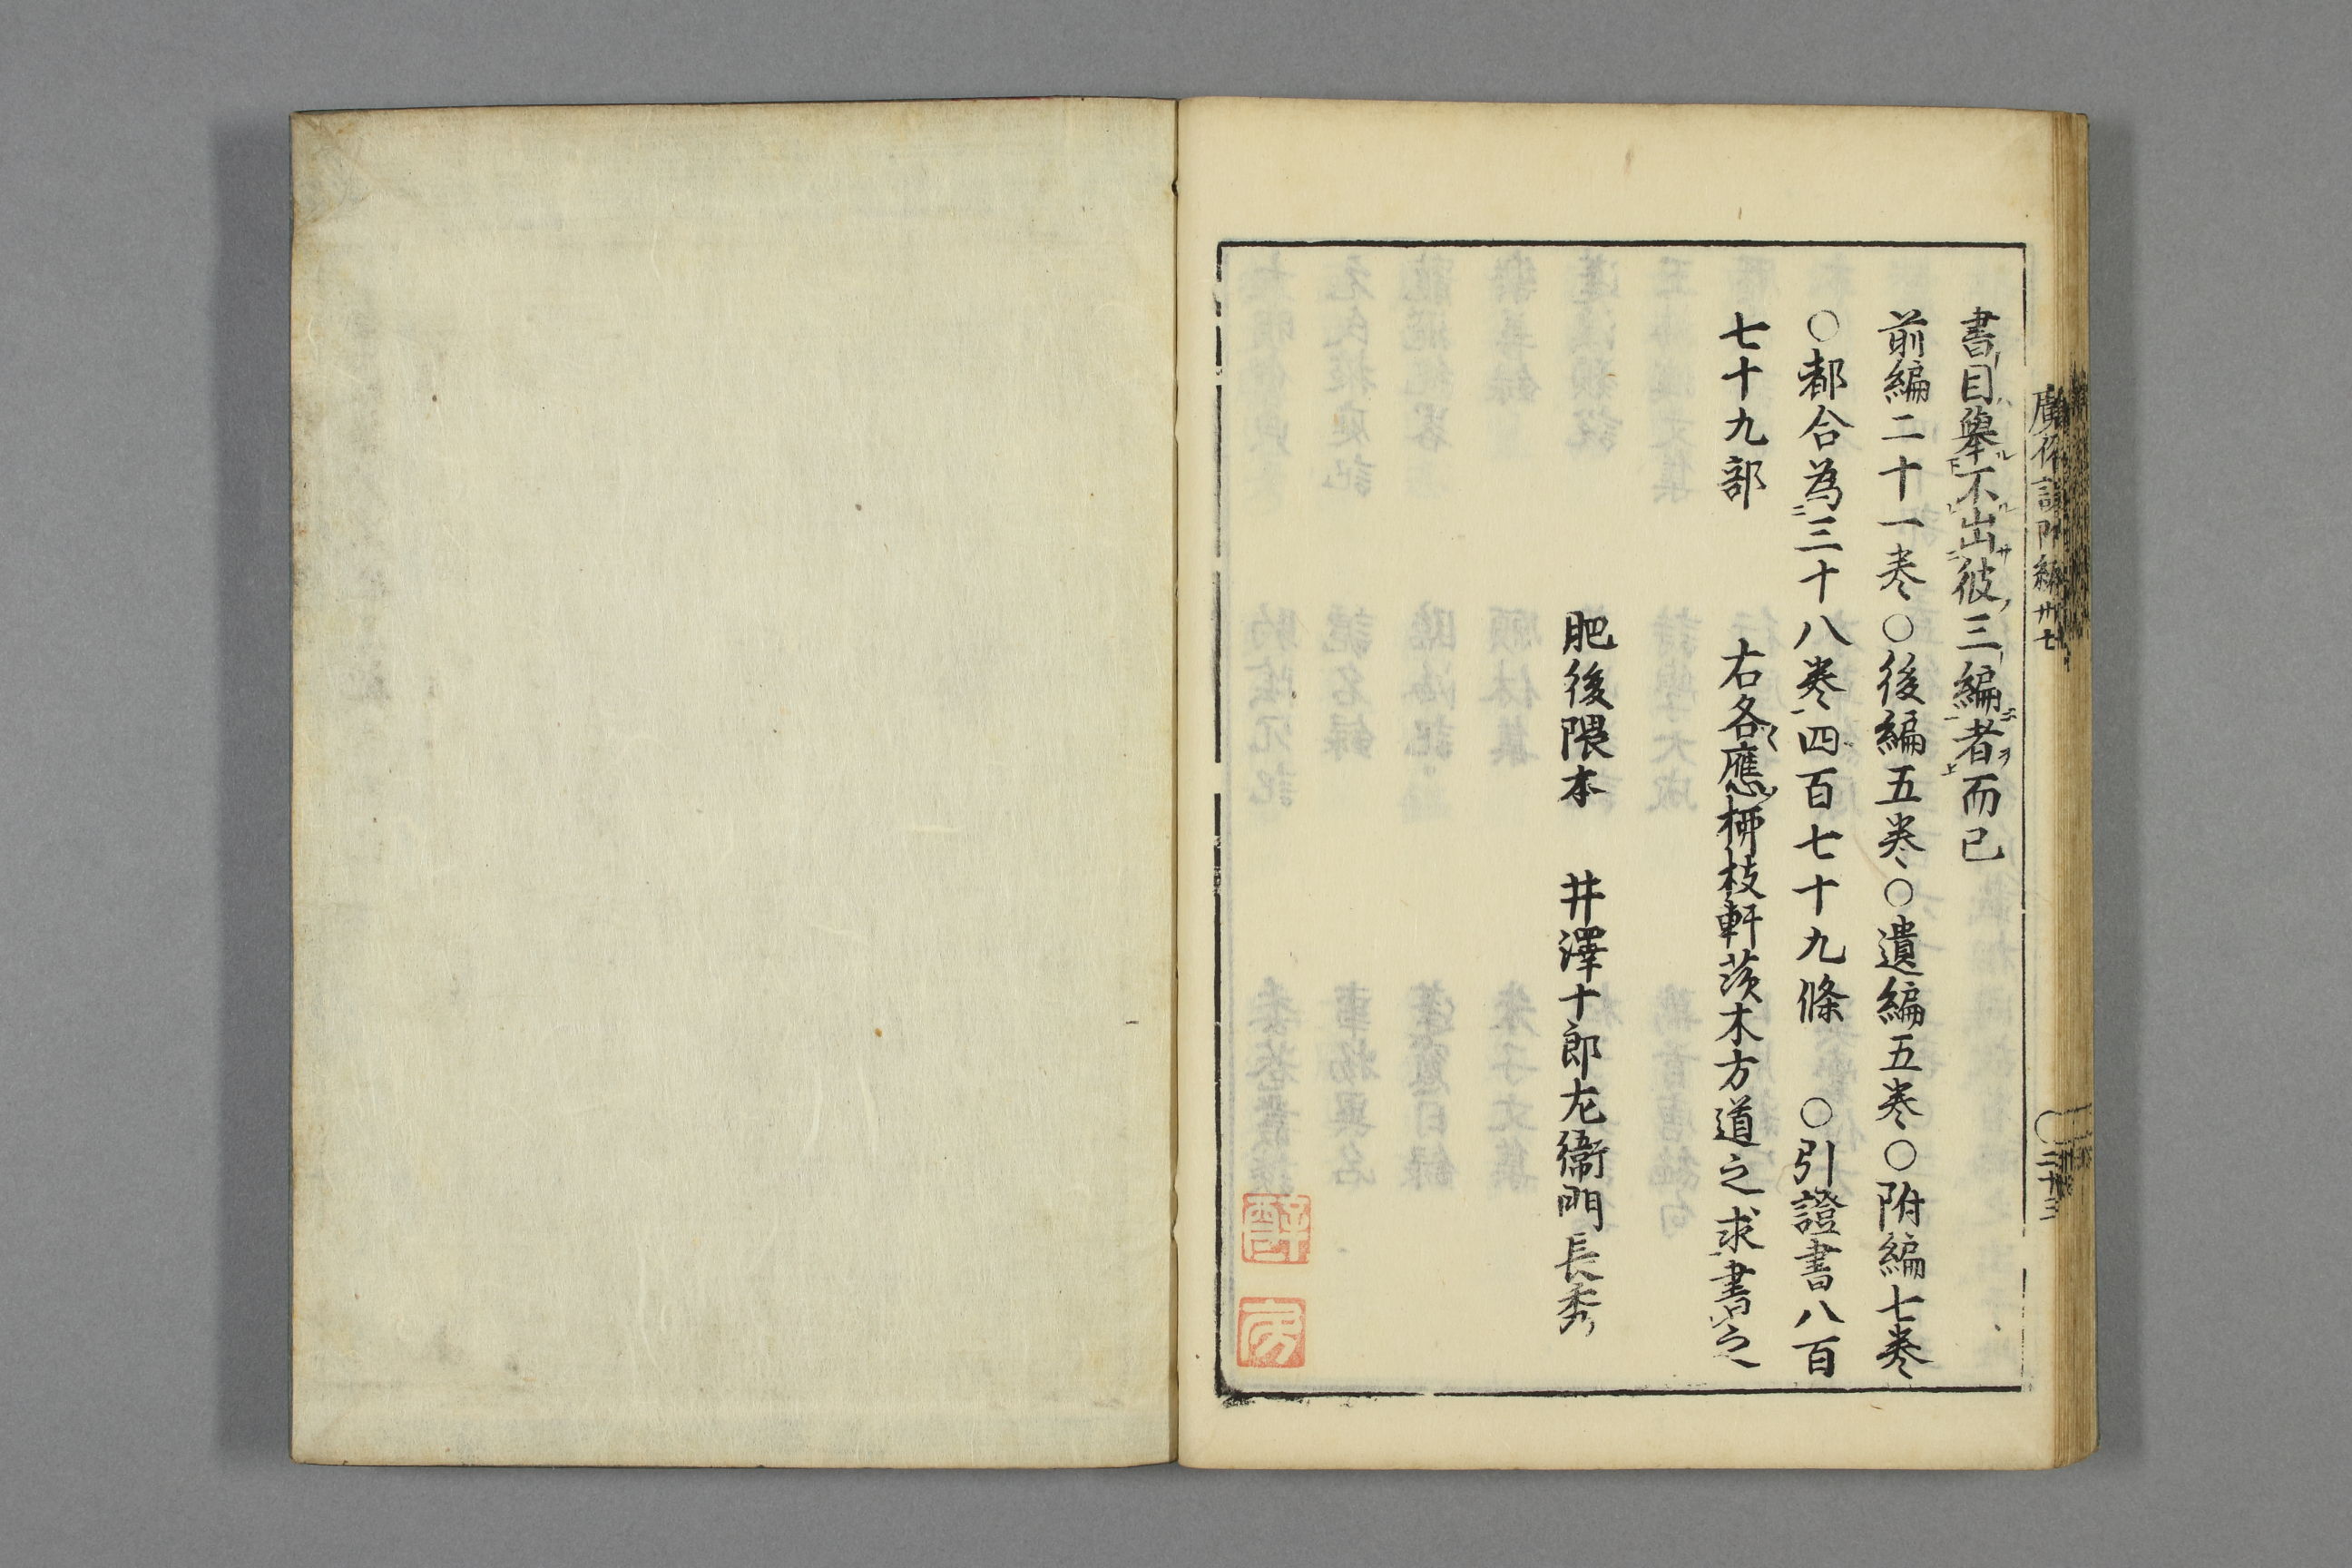 廣俗說附編 卅七
二十三
書目舉不出彼三編者而已
前編二十一巻○後編五巻○遺編五巻○附編七巻
○都合為三十八巻四百七十九條 ○引證書八百
七十九部 右各應栁枝軒茨木方道之求書之
肥後隈本 井澤十郎左衞門長秀